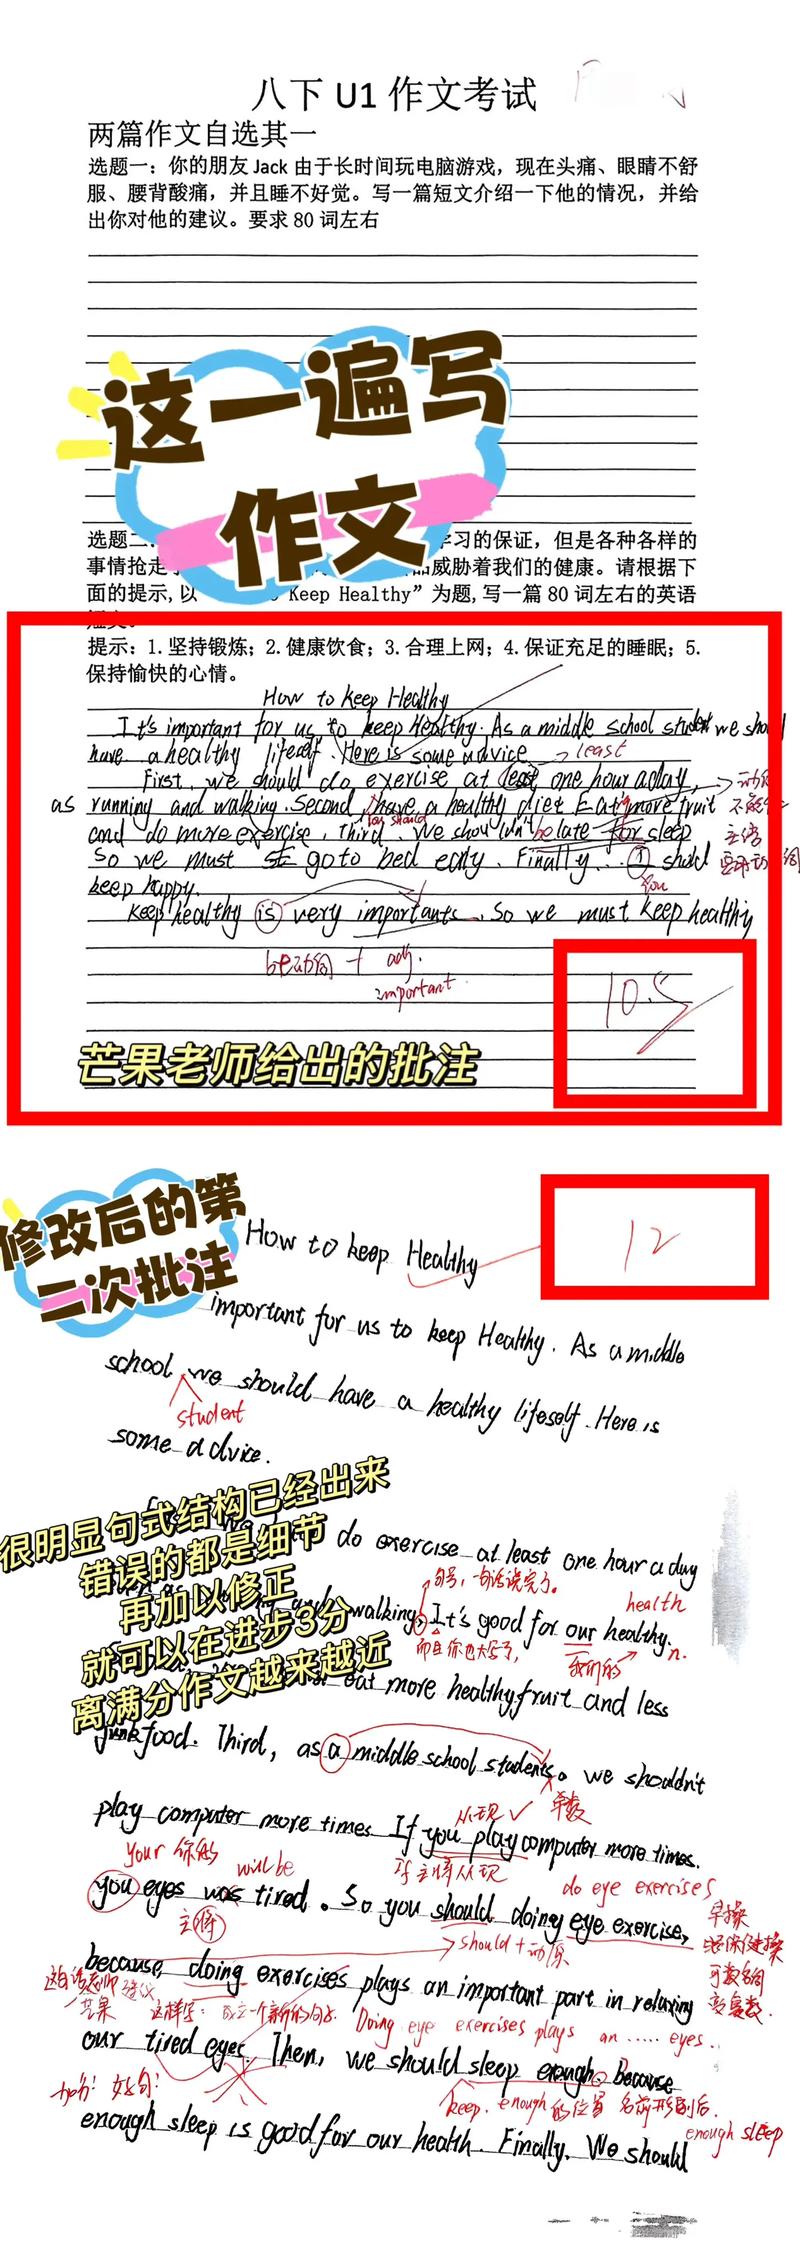 八下 U1 作文考试
两篇作文自选其一
选题一：你的朋友 Jack 由于长时间玩电脑游戏，现在头痛、眼睛不舒
服、腰背酸痛，并且睡不好觉。写一篇短文介绍一下他的情况，并给
出你对他的建议。要求 80 词左右
这一遍写
作文
选题二 学习的保证，但是各种各样的
事情抢走 品威胁着我们的健康。请根据下
面的提示，以 Keep Healthy”为题，写一篇 80 词左右的英语
短文。
提示：1.坚持锻炼；2.健康饮食；3.合理上网；4.保证充足的睡眠；5.
保持愉快的心情。
How to keep Healthy
It's important for us to keep Healthy. As a middle school student we should
have a healthy lifeself. Here is some advice
least
First, we should do exercise at least one hour a day,
as running and walking. Second, have a healthy diet Eat more fruit
you should
and do more exercise, Third we shouldn't be late for sleep
主语
So we must go to bed early. Finally.. I should
you
keep happy.
keep healthy is very importants. So we must keep healthy
be动词 + adj.
important
10.5
芒果老师给出的批注
修改后的第
二次批注
How to keep Healthy
12
important for us to keep Healthy. As a middle
school we should have a healthy lifeself. Here is
student
some advice.
很明显句式结构已经出来
错误的都是细节
再加以修正
就可以在进步3分
离满分作文越来越近
do exercise at least one hour a day
句号，一句话说完了。
health
walking, It's good for our healthy.
而且你也大写了，
我们的
n.
eat more healthy fruit and less
junk food. Third, as a middle school students. we shouldn't
单数
play computer more times If you play computer more times.
从现
Your 你的
will be
主将从现
do eye exercises
you eyes was tired. So you should doing eye exercise,
主将
should + 动原
早操
可数名词
变复数.
because, doing exercises plays an important part in relaxing
芒果
Doing eye exercises plays an ..... eyes..
our tired eyes. Then, we should sleep enough. because
加分! 好句!
keep. enough的位置 名前形副后.
enough sleep
enough sleep is good for our health. Finally. We should